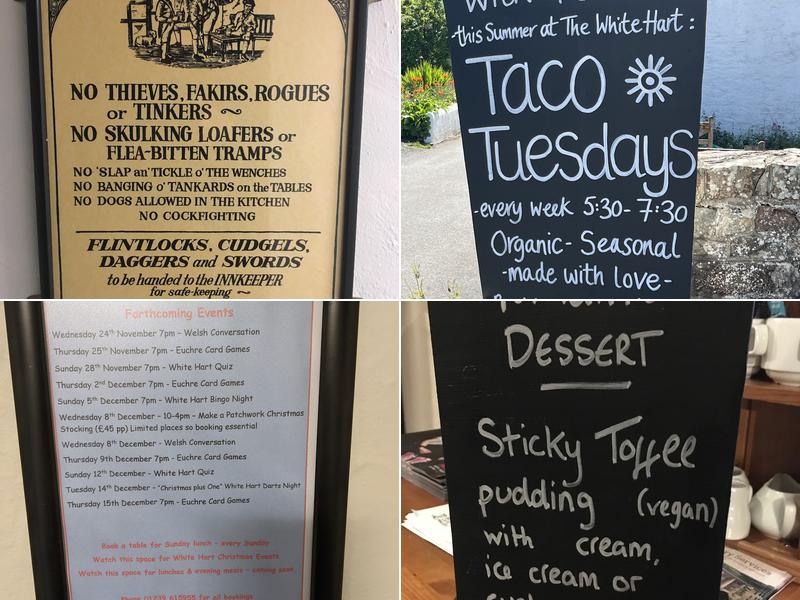 NO THIEVES, FAKIRS, ROGUES
or TINKERS ~
NO SKULKING LOAFERS or
FLEA-BITTEN TRAMPS
NO 'SLAP an' TICKLE O' THE WENCHES
NO BANGING O' TANKARDS on the TABLES
NO DOGS ALLOWED IN THE KITCHEN
NO COCKFIGHTING
FLINTLOCKS, CUDGELS,
DAGGERS and SWORDS
to be handed to the INNKEEPER
for safe-keeping ~
this Summer at The White Hart :
Taco
Tuesdays
-every week 5:30-7:30
Organic - Seasonal
-made with love-
Forthcoming Events
Wednesday 24th November 7pm - Welsh Conversation
Thursday 25th November 7pm - Euchre Card Games
Sunday 28th November 7pm - White Hart Quiz
Thursday 2nd December 7pm - Euchre Card Games
Sunday 5th December 7pm - White Hart Bingo Night
Wednesday 8th December - 10-4pm - Make a Patchwork Christmas
Stocking (£45 pp) Limited places so booking essential
Wednesday 8th December - Welsh Conversation
Thursday 9th December 7pm - Euchre Card Games
Sunday 12th December - White Hart Quiz
Tuesday 14th December - "Christmas plus One" White Hart Darts Night
Thursday 15th December 7pm - Euchre Card Games
Book a table for Sunday lunch - every Sunday
Watch this space for White Hart Christmas Events
Watch this space for lunches & evening meals - coming soon
Phone 01239 615955 for all bookings
DESSERT
Sticky Toffee
pudding (vegan)
with cream,
ice cream or